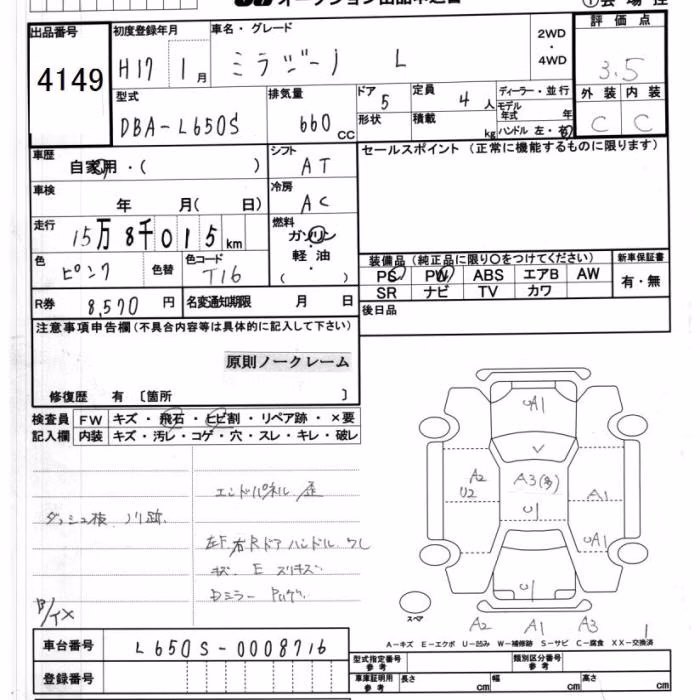 オークション出品申込書
①会場控
出品番号
4149
初度登録年月
H17 1月
車名・グレード
ミラジーノ L
2WD
・
4WD
評価点
3.5
外装 内装
C C
型式
DBA-L650S
排気量
660 CC
ドア 5
形状
定員 4人
積載 kg
ディーラー・並行
モデル年式 年
ハンドル 左・右
車歴
自家用・( )
シフト
AT
セールスポイント(正常に機能するものに限ります)
車検
年 月( 日)
冷房
AC
走行
15万8千015km
燃料
ガソリン
・
軽油
( )
色
ピンク
色替
色コード
T16
装備品(純正品に限り〇をつけてください)
新車保証書
PS PW ABS エアB AW
有・無
SR ナビ TV カワ
R券 8,570円
名変通知期限 月 日
後日品
注意事項申告欄(不具合内容等は具体的に記入して下さい)
原則ノークレーム
修復歴 有〔箇所 〕
検査員
記入欄
FW キズ・飛石・ヒビ割・リペア跡・×要
内装 キズ・汚レ・コゲ・穴・スレ・キレ・破レ
エンドパネル 歪
ダッシュ板 ノリ跡
左F,右Rドアハンドル
キズ E スリキズ
Dミラー
UA1
A2
U2
A3(多)
U
A1
UA1
U
スペア
A2 A1 A3 1
A-キズ E-エクボ U-凹み W-補修跡 S-サビ C-腐食 XX-交換済
車台番号
L650S-0008716
登録番号
型式指定番号
参考
類別区分番号
参考
車庫証明用
参考
長さ cm 幅 cm 高さ cm